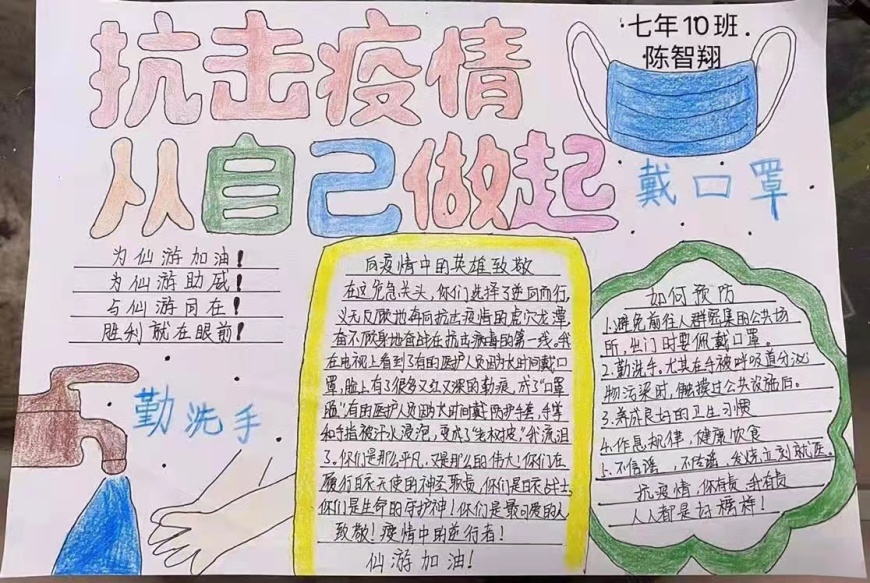 抗击疫情
从自己做起
七年10班
陈智翔
戴口罩
为仙游加油!
为仙游助威!
与仙游同在!
胜利就在眼前!
勤洗手
向疫情中的英雄致敬
在这危急关头,你们选择了逆向而行,
义无反顾地奔向抗击疫情的虎穴龙潭,
奋不顾身地奋战在抗击病毒的第一线。我
在电视上看到了有的医护人员因为长时间戴口
罩,脸上有了很多又红又深的勒痕,成了“口罩
脸”有的医护人员因为长时间戴防护手套,手掌
和手指被汗水浸泡,变成了“生树皮”我流泪
了。你们是那么平凡,又是那么的伟大!你们在
履行白衣天使的神经职责,你们是白衣战士,
你们是生命的守护神!你们是最可爱的人
致敬!疫情中的逆行者!
仙游加油!
如何预防
1.避免前往人群密集的公共场
所,出门时要佩戴口罩。
2.勤洗手。尤其在手被呼吸道分泌
物污染时,触摸过公共设施后。
3.养成良好的卫生习惯
4.作息规律,健康饮食
5.不信谣,不传谣,发烧立刻就医。
抗疫情,你有责,我有责
人人都是好榜样!